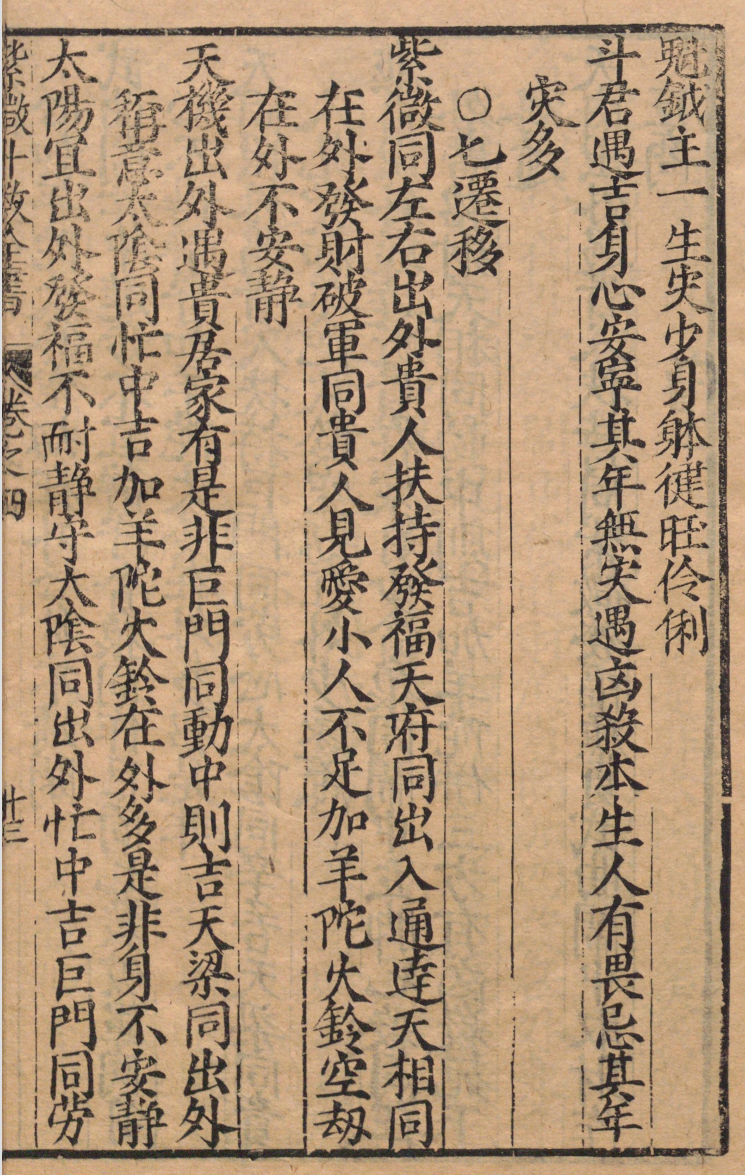 魁鉞主一生灾少身躰健旺伶俐
斗君遇吉身心安寧其年無灾遇凶殺本生人有畏忌其年
灾多
○七遷移
紫微同左右出外貴人扶持發福天府同出入通達天相同
在外發財破軍同貴人見愛小人不足加羊陀火鈴空劫
在外不安静
天機出外遇貴居家有是非巨門同動中則吉天梁同出外
稱意太陰同忙中吉加羊陀火鈴在外多是非身不安静
太陽宜出外發福不耐静守太陰同出外忙中吉巨門同劳
紫微斗数全書 卷之四 廿三